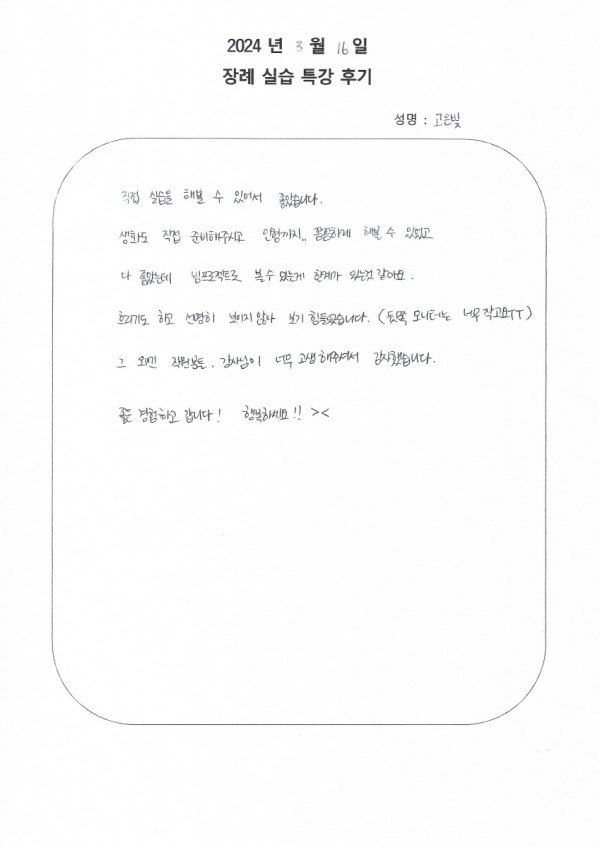 2024 년 3 월 16 일
장례 실습 특강 후기
성명 : 고은빛
직접 실습을 해볼 수 있어서 좋았습니다.
생화도 직접 준비해주시고 인형까지,, 꼼꼼하게 해볼 수 있었고
다 좋았는데 빔프로젝트로 볼 수 있는게 한계가 있는것 같아요.
흐리기도 하고 선명히 보이지않아 보기 힘들었습니다. (뒷쪽 모니터는 너무 작고요TT)
그 외엔 직원분들, 강사님이 너무 고생해주셔서 감사했습니다.
좋은 경험하고 갑니다! 행복하세요!! ><